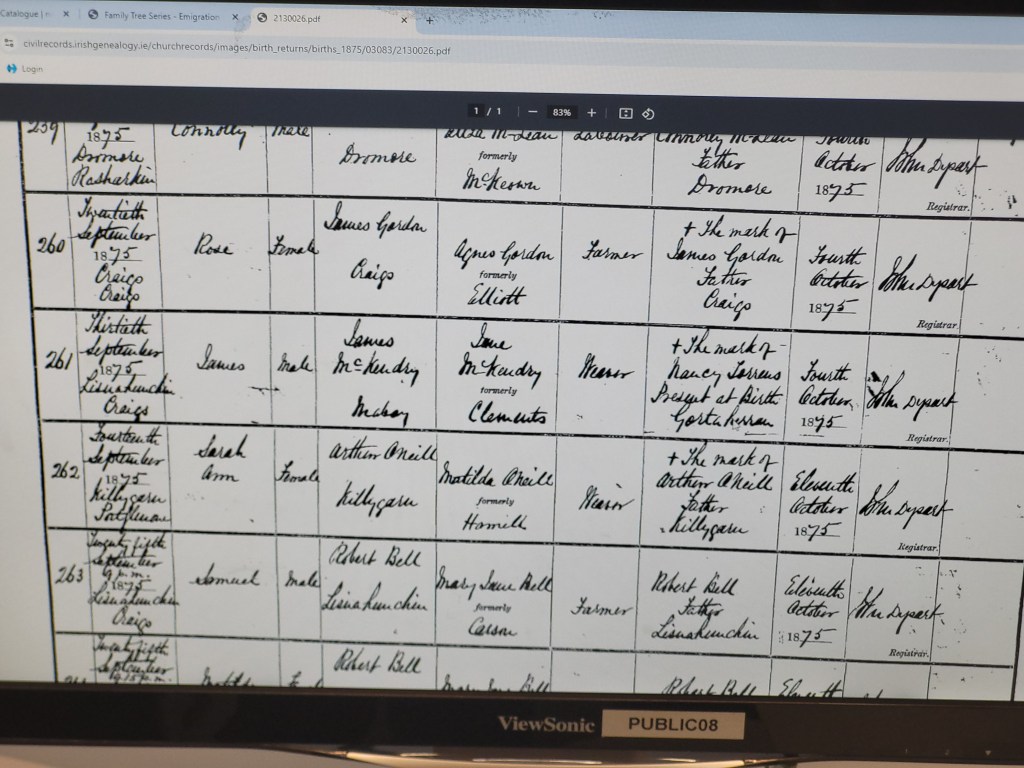 Catalogue |
Family Tree Series - Emigration
2130026.pdf
civilrecords.irishgenealogy.ie/churchrecords/images/birth_returns/births_1875/03083/2130026.pdf
Login
1 / 1
83%
259
1875
Dromore
Rasharkin
Connolly
Male
Dromore
Eliza McLean
formerly
McKeown
Labourer
Connolly McLean
Father
Dromore
Fourth
October
1875
John Dysart
Registrar.
260
Twentieth
September
1875
Craigs
Craigs
Rose
Female
James Gordon
Craigs
Agnes Gordon
formerly
Elliott
Farmer
+ The mark of
James Gordon
Father
Craigs
Fourth
October
1875
John Dysart
Registrar.
261
Thirtieth
September
1875
Lisnahunchin
Craigs
James
Male
James
McKendry
Jane
McKendry
formerly
Clements
Weaver
+ The mark of
Nancy Torrens
Present at Birth
Fourth
October
1875
John Dysart
Registrar.
262
Fourteenth
September
1875
Killygarn
Portglenone
Sarah
Ann
Female
Arthur O'Neill
Killygarn
Matilda O'Neill
formerly
Weaver
+ The mark of
Arthur O'Neill
Father
Killygarn
Eleventh
October
1875
John Dysart
Registrar.
263
Twenty fifth
September
9 p.m.
1875
Lisnahunchin
Craigs
Samuel
Male
Robert Bell
Lisnahunchin
Mary Jane Bell
formerly
Carson
Farmer
Robert Bell
Father
Lisnahunchin
Eleventh
October
1875
John Dysart
Registrar.
Twenty fifth
September
9.15 p.m.
Robert Bell
Mary Jane Bell
Robert Bell
Eleventh
ViewSonic
PUBLIC08